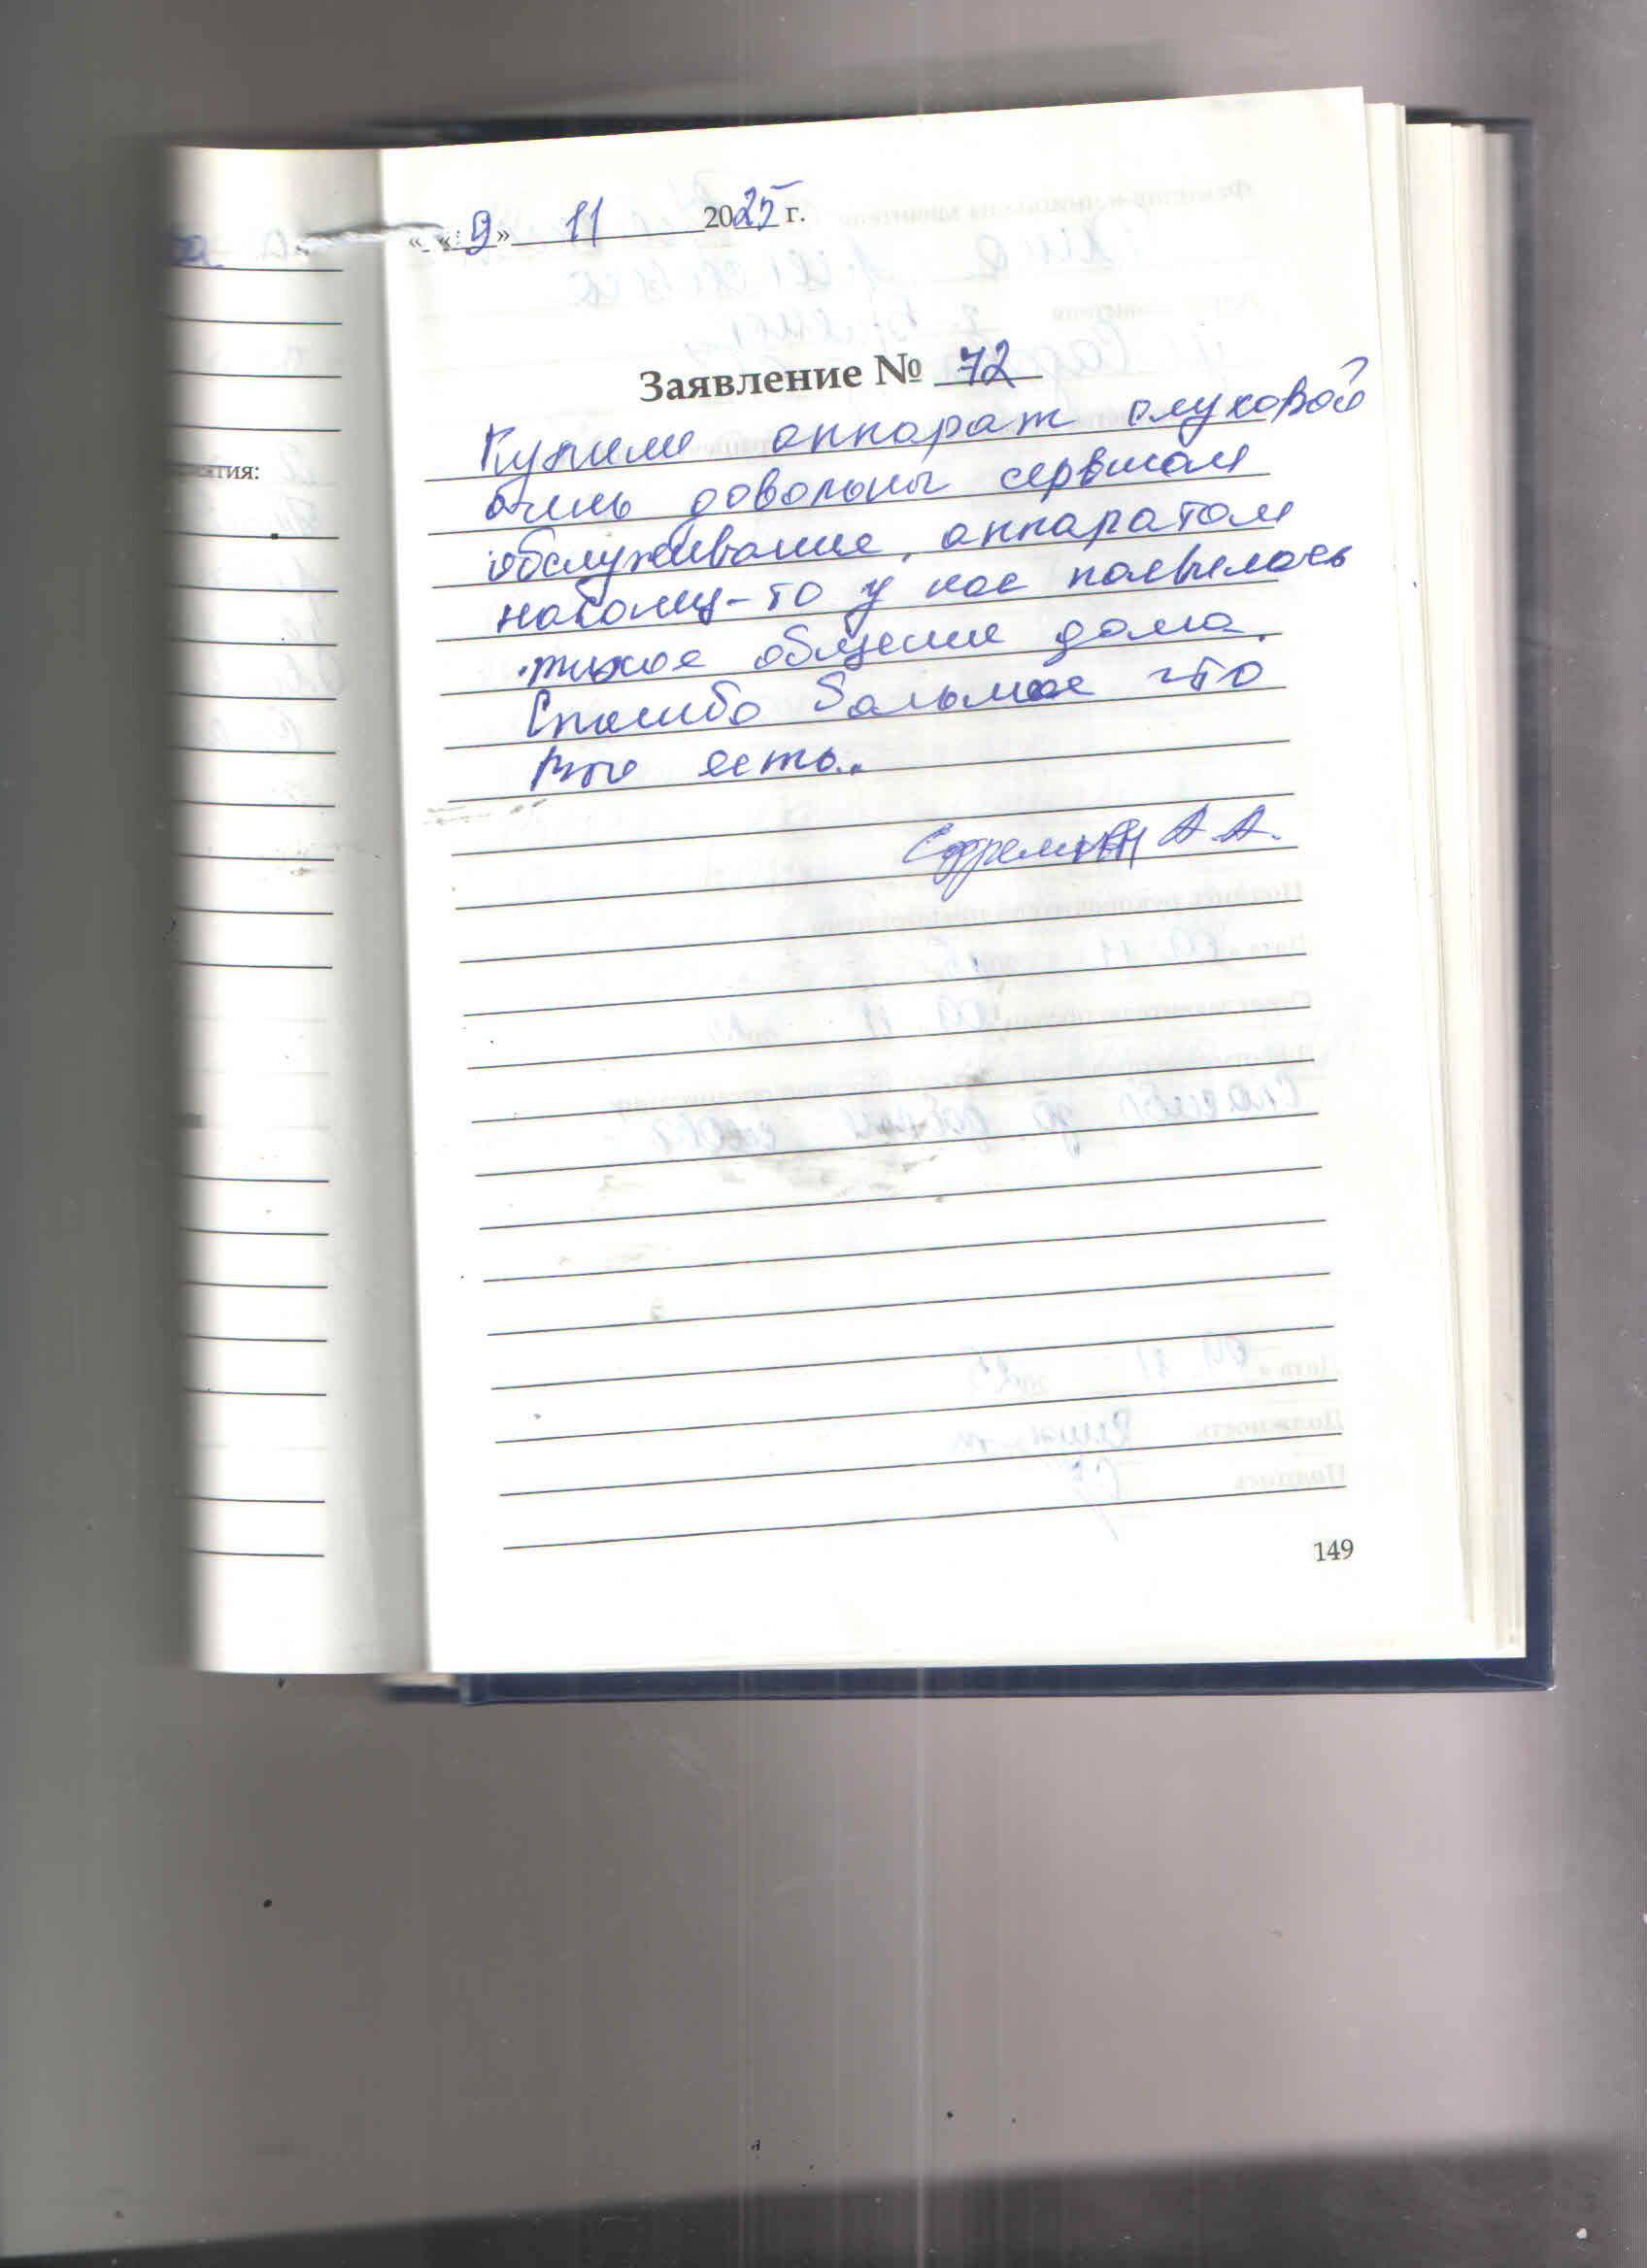 « 9 » 11 2025 г.
Заявление № 72
Купили аппарат слуховой
очень довольны сервисом
обслуживание, аппаратом
наконец-то у нас появилось
тихое общение дома.
Спасибо большое что
Вы есть..
А. А.
149
ятия: